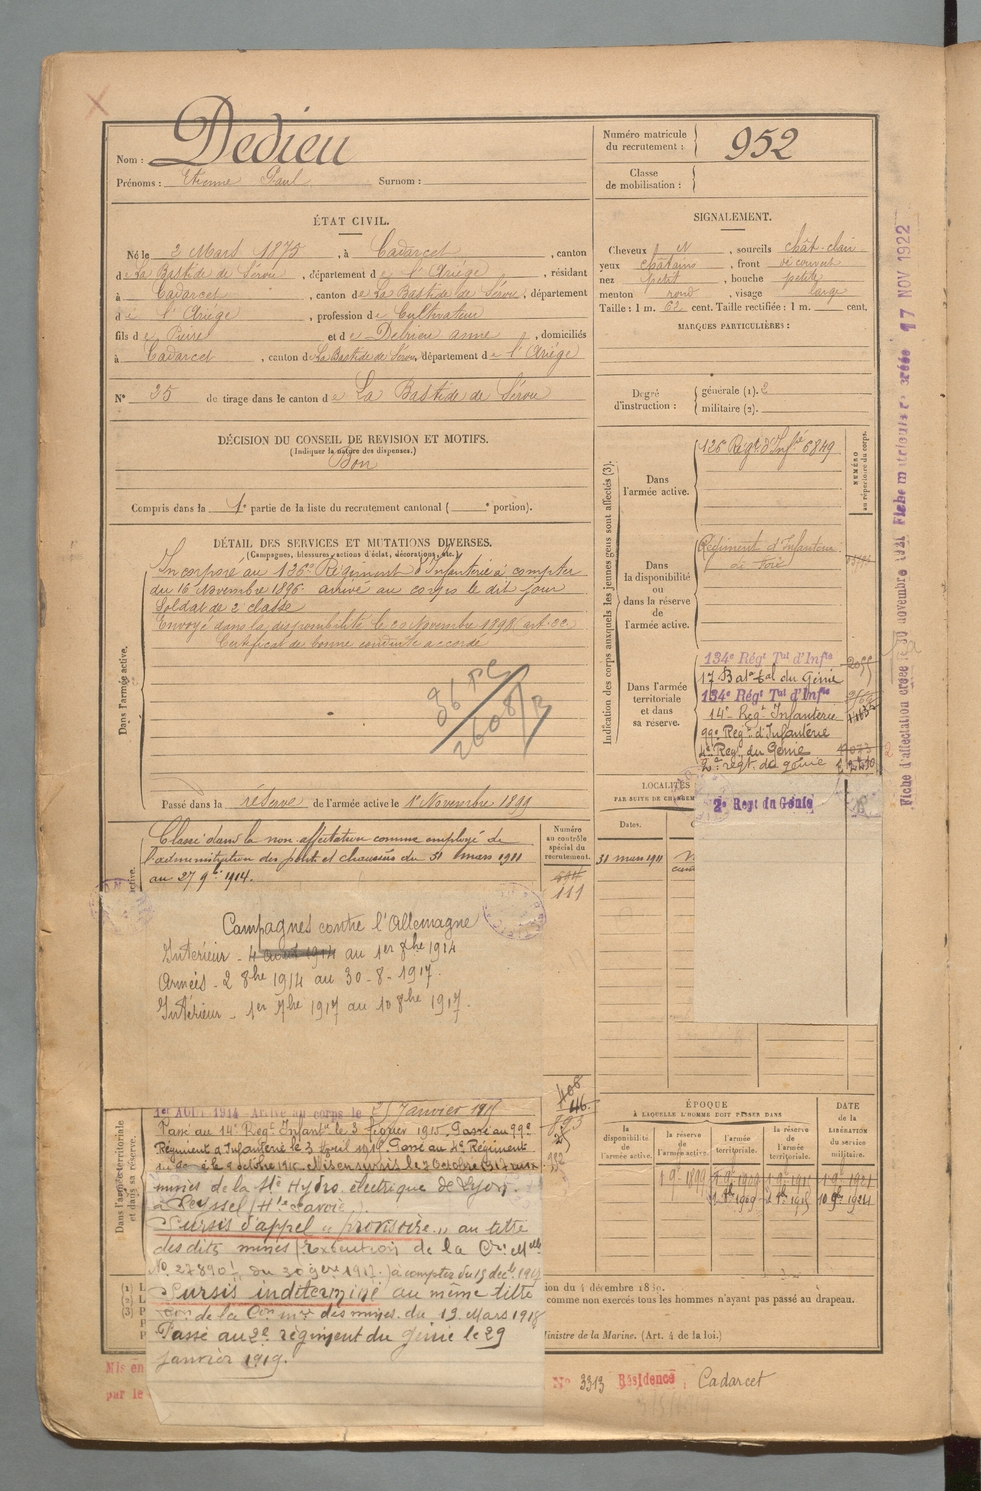 Nom : Dedieu
Prénoms : Etienne Paul Surnom :
Numéro matricule du recrutement : 952
Classe de mobilisation :
ÉTAT CIVIL.
Né le 2 Mars 1875, à Cadarcet, canton
de La Bastide de Sérou, département de l'Ariège, résidant
à Cadarcet, canton de La Bastide de Sérou, département
d l'Ariège, profession de Cultivateur
fils de Pierre et de anne, domiciliés
à Cadarcet, canton de La Bastide de Sérou, département de l'Ariège
N° 25 de tirage dans le canton de La Bastide de Sérou
SIGNALEMENT.
Cheveux N, sourcils chât-clair
yeux châtains, front découvert
nez petit, bouche petite
menton rond, visage large
Taille : 1 m. 62 cent. Taille rectifiée : 1 m. cent.
MARQUES PARTICULIÈRES :
Degré d'instruction : générale (1). 2
militaire (2).
DÉCISION DU CONSEIL DE REVISION ET MOTIFS.
(Indiquer la nature des dispenses.)
Bon
Compris dans la 1e partie de la liste du recrutement cantonal ( e portion).
DÉTAIL DES SERVICES ET MUTATIONS DIVERSES.
(Campagnes, blessures, actions d'éclat, décorations, etc.)
Dans l'armée active.
Incorporé au 126e Régiment d'Infanterie à compter
du 16 Novembre 1896 arrivé au corps le dit jour
Soldat de 2 classe
Envoyé dans la disponibilité le 20 Novembre 1898, art. 22
Certificat de bonne conduite accordé
Passé dans la réserve de l'armée active le 1r Novembre 1899
Indication des corps auxquels les jeunes gens sont affectés (3).
NUMÉRO au répertoire du corps.
Dans l'armée active.
126e Régt d'Infie 6849
Dans la disponibilité ou dans la réserve de l'armée active.
Régiment d'Infanterie
de Foix
Dans l'armée territoriale et dans sa réserve.
134e Régt Tal d'Infie
17 Bat al du Génie
134e Régt Tal d'Infie
14e Regt Infanterie
99e Regt d'Infanterie
4e Reg. du Génie
2e regt. du génie
2e Regt du Génie
LOCALITÉS
Dates.
31 mars 1911
Classé dans la non-affectation comme employé de
l'administration des ponts et chaussées du 31 mars 1911
au 27 9bre 1914.
Numéro au contrôle spécial du recrutement.
111
Campagnes contre l'Allemagne
Intérieur - 4 août 1914 au 1er 8bre 1914
Armées - 2 8bre 1914 au 30-8-1917.
Intérieur - 1er 7bre 1917 au 10 8bre 1917.
Dans l'armée territoriale et dans sa réserve.
1er AOUT 1914 Arrivé au corps le 25 Janvier 1915
Passé au 14e Regt Infantie le 3 février 1915. Passé au 99e
Régiment d'Infanterie le 3 Avril 1915. Passé au 4e Régiment
du génie le octobre 1915. Mis en sursis le Octobre 1917 aux
mines de la Sté Hydro électrique de Lyon.
à Seyssel (Hte Savoie).
Sursis d'appel "provisoire" au titre
des dites mines (exécution de la Con Mlle
No 27890 du 30 9bre 1917.) à compter du 15 décbre 1917
Sursis indéterminé au même titre
de la Con mre des mines. du 13 Mars 1918
Passé au 2e régiment du génie le 29
Janvier 1919.
ÉPOQUE
À LAQUELLE L'HOMME DOIT PASSER DANS
la disponibilité de l'armée active.
la réserve de l'armée active.
l'armée territoriale.
la réserve de l'armée territoriale.
DATE de la LIBÉRATION du service militaire.
comme non exercés tous les hommes n'ayant pas passé au drapeau.
Ministre de la Marine. (Art. 4 de la loi.)
Mis en
par le
N° 3313 Résidence : Cadarcet
17 NOV 1922